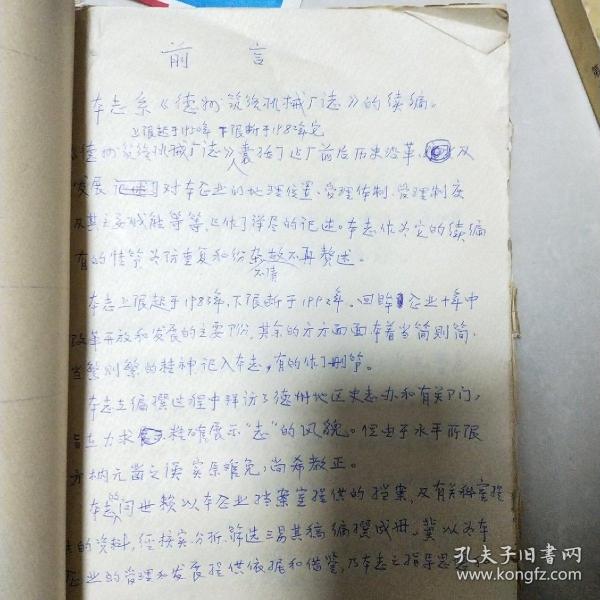 前 言
本志系《德州筑路机械厂志》的续编。
上限起于1950年下限断于1982年完
《德州筑路机械厂志》囊括了建厂前后历史沿革、及
发展 对本企业的地理位置、管理体制、管理制度
及其主要职能等等,上作了详尽的记述。本志作为它的续编
有的情节为防重复和纷杂故不再赘述。
不清
本志上限起于1983年,下限断于1992年。回眸企业十年中
改革开放和发展的主要部份,其余的方方面面本着当简则简、
当繁则繁的精神记入本志,有的作了删节。
本志在编撰过程中拜访了德州地区史志办和有关部门,
旨在力求精确展示“志”的风貌。但由于水平所限
方枘元凿之误实属难免,尚希教正。
本志的问世赖以本企业档案室提供的档案及有关科室提
的资料,经核实分析、筛选三易其稿编撰成册。冀以为本
企业的管理和发展提供依据和借鉴,乃本志之指导思
孔夫子旧书网
www.kongfz.com